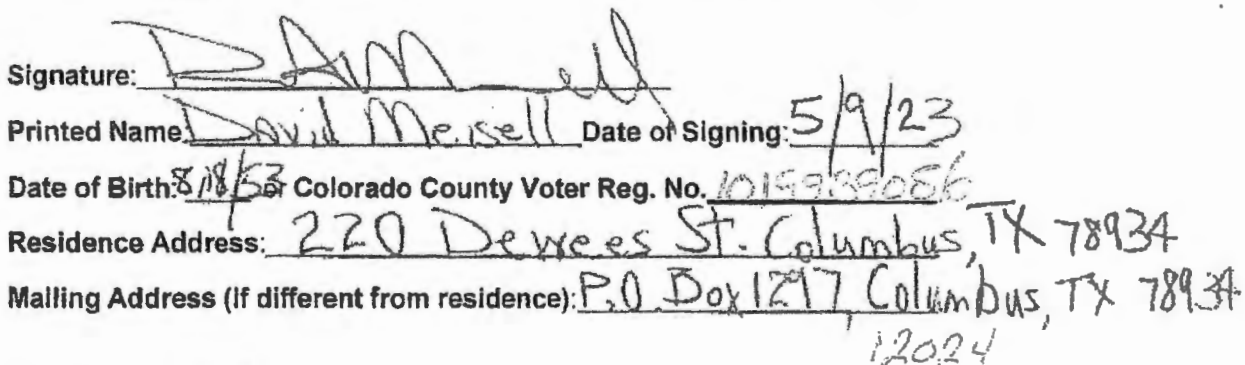 Signature:
Printed Name: David Meisell Date of Signing: 5/9/23
Date of Birth: 8/18/53 or Colorado County Voter Reg. No. 1019939056
Residence Address: 220 Dewees St. Columbus, TX 78934
Mailing Address (If different from residence): P.O. Box 1297, Columbus, TX 78934
12024